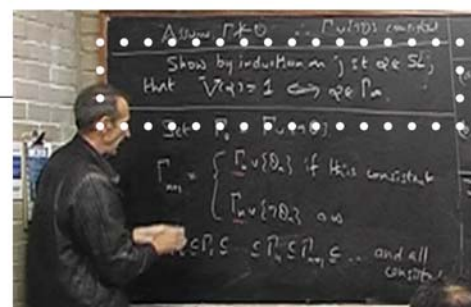 Assume Γ⊬θ ∴ Γ∪{¬θ} consistent
Show by induction on j if α∈SL;
that V(α)=1 ⇔ α∈Γ∞
Set Γ₀ = Γ∪{¬θ}
Γₙ₊₁ = { Γₙ∪{θₙ} if this consistent
Γₙ∪{¬θₙ} o.w
⊆Γ₁⊆ ..⊆Γₙ⊆Γₙ₊₁⊆.. and all